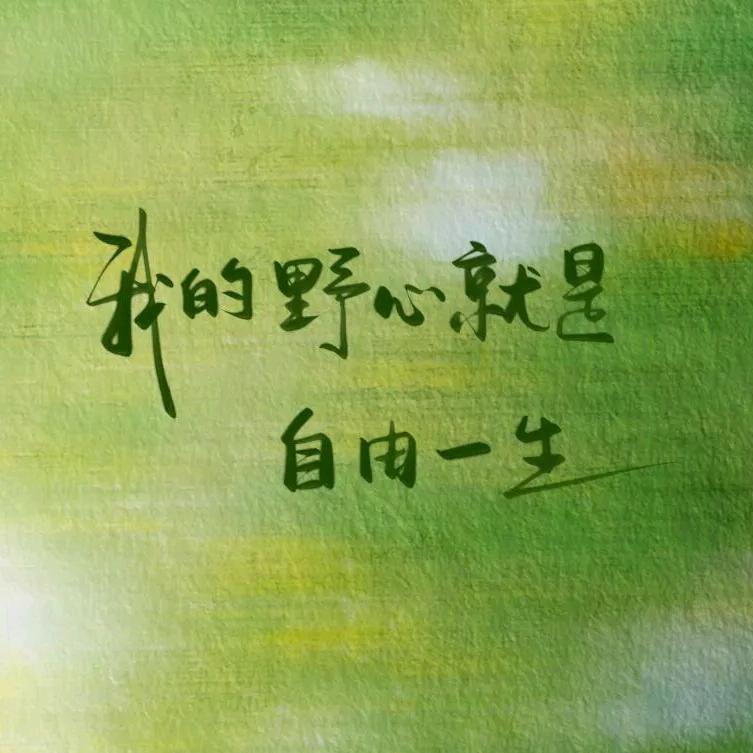 我的野心就是
自由一生